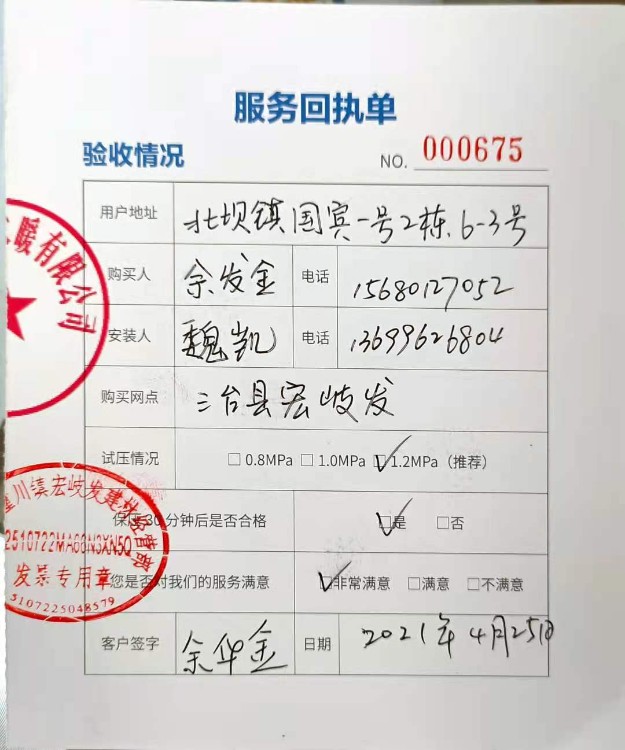 服务回执单
验收情况
NO. 000675
用户地址 北坝镇国宾一号2栋6-3号
购买人 余发金 电话 15680127052
安装人 魏凯 电话 13699626804
购买网点 三台县宏岐发
试压情况 □ 0.8MPa □ 1.0MPa □ 1.2MPa（推荐）
保压30分钟后是否合格 □是 □否
您是否对我们的服务满意 □非常满意 □满意 □不满意
客户签字 余华金 日期 2021年4月25日
暖有限公司
川镇宏岐发建材经营部
2510722MA68N3XN5Q
发票专用章
5107225048579